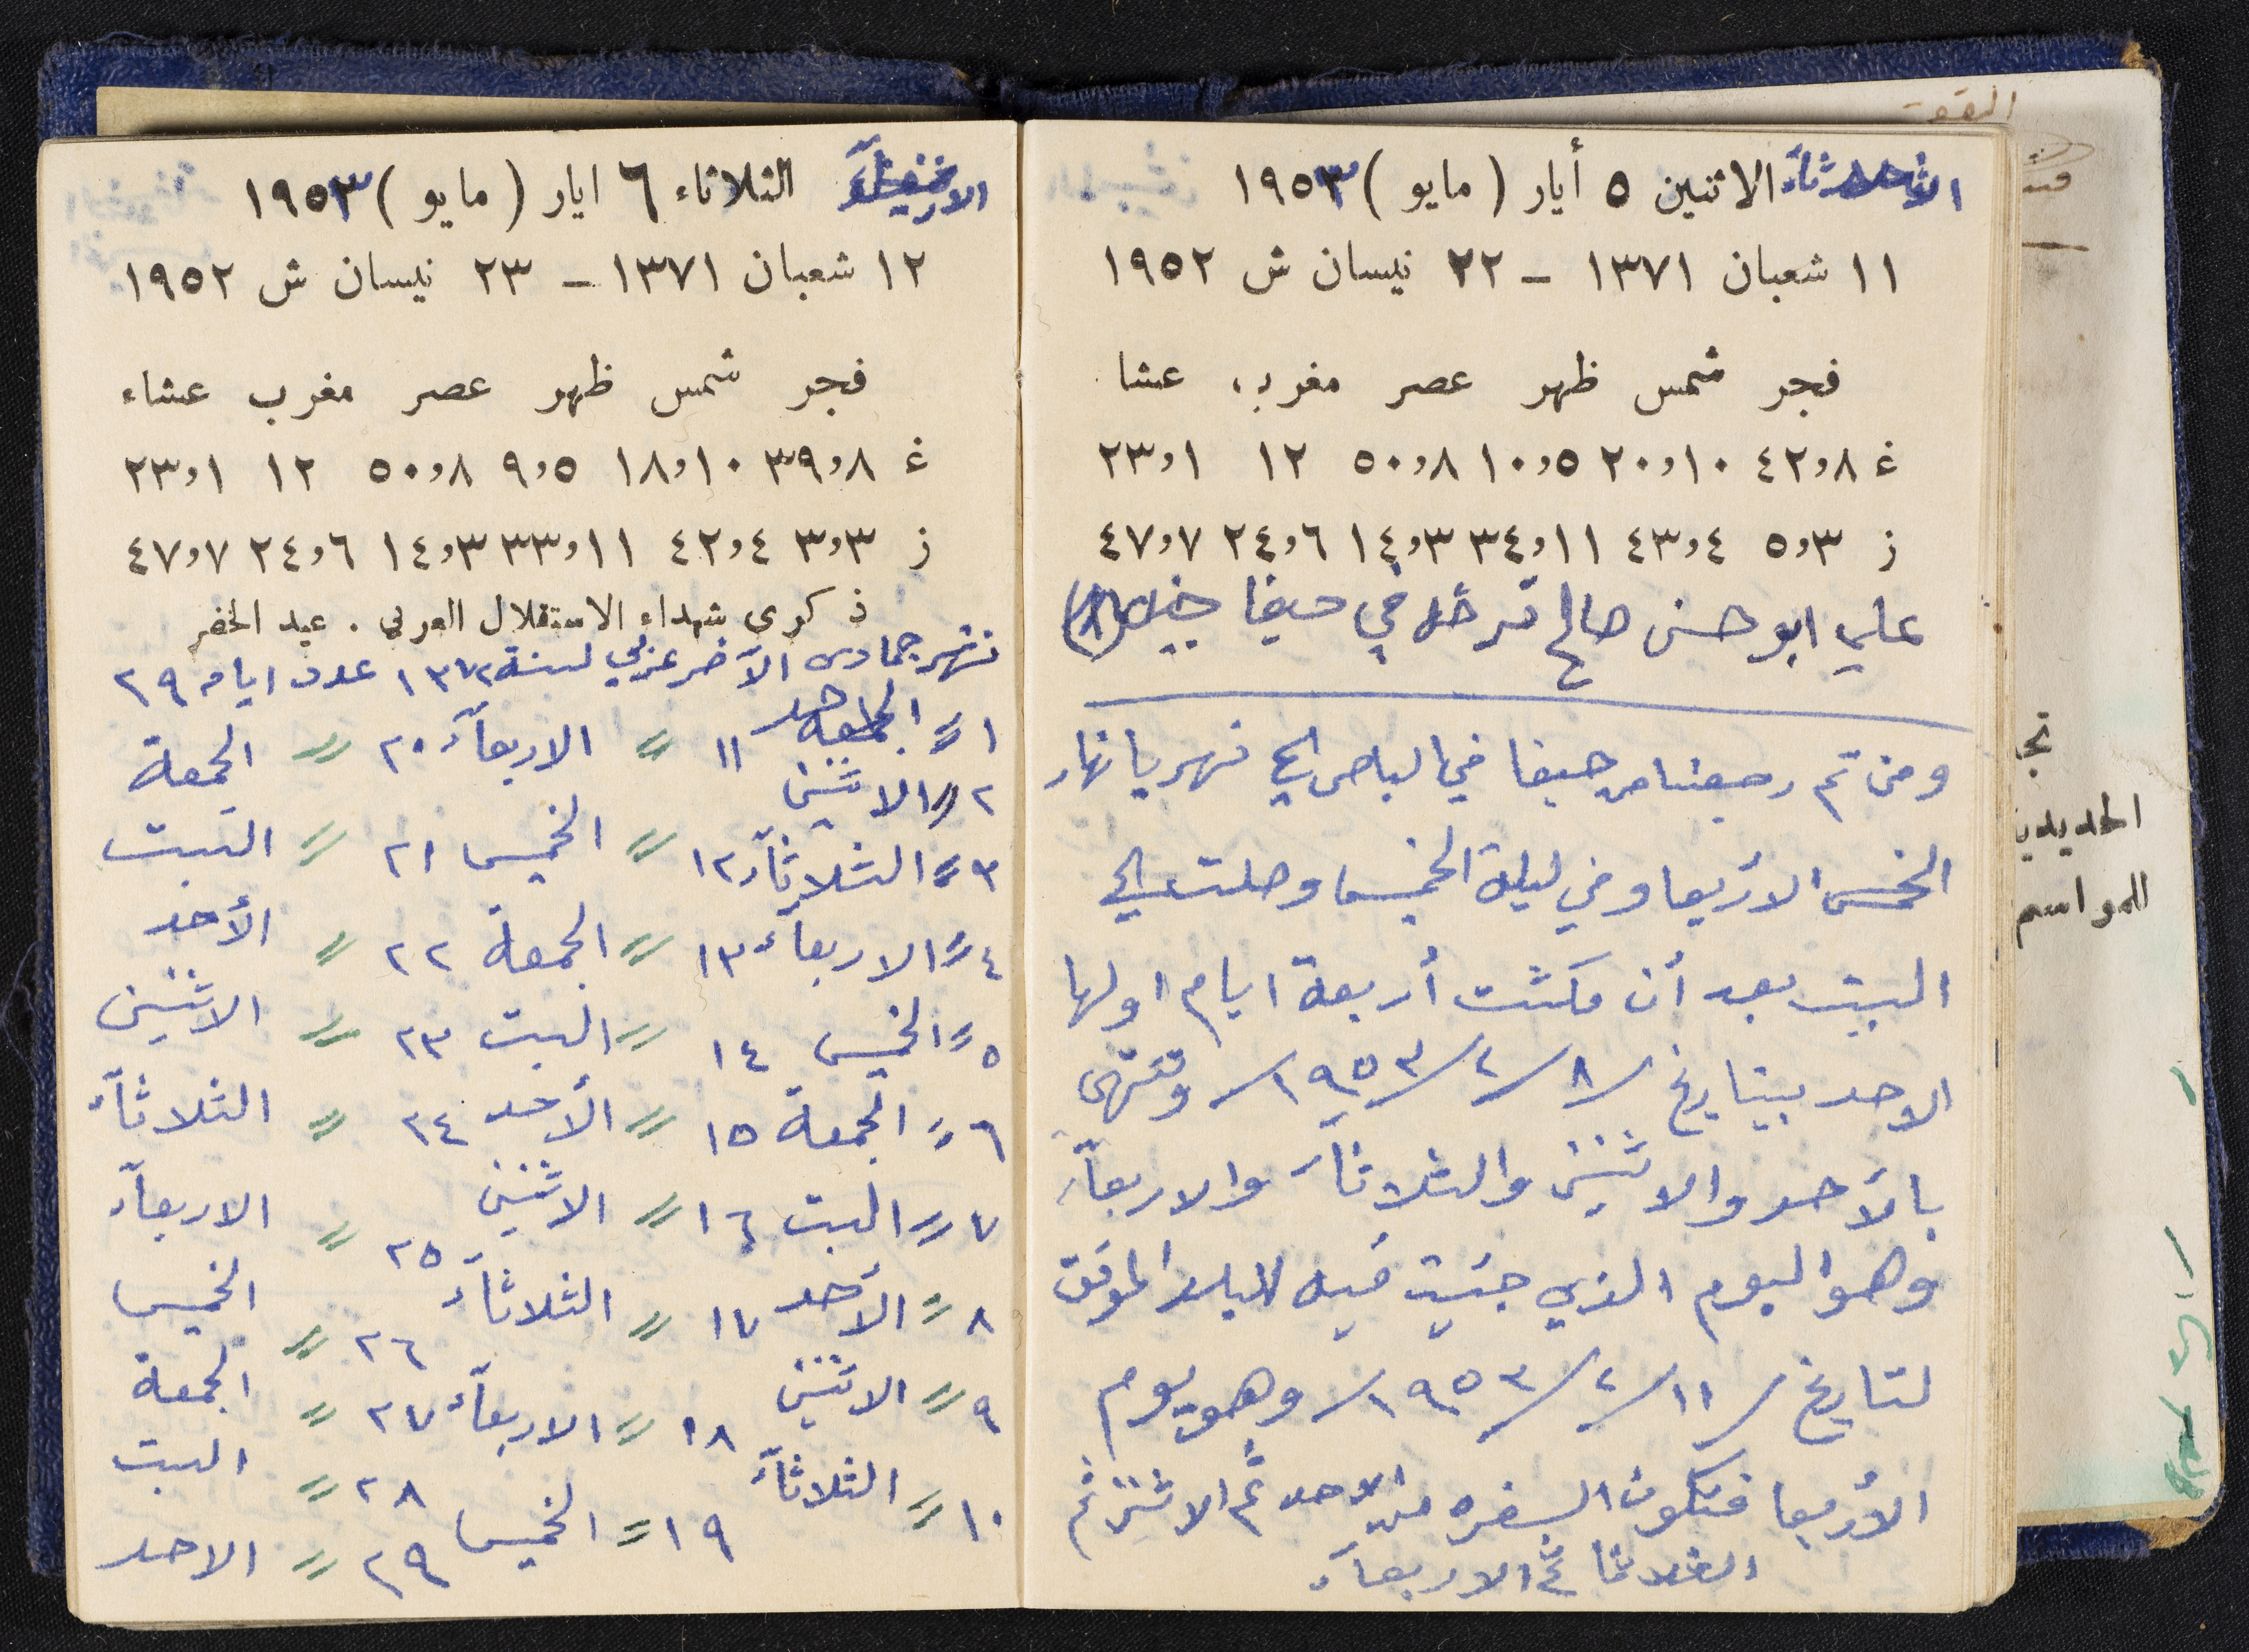 الاثنين ٥ أيار ( مايو ) ١٩٥٣
١١ شعبان ١٣٧١ - ٢٢ نيسان ش ١٩٥٢
فجر شمس ظهر عصر مغرب عشا
غ ٤٢,٨ ٢٠,١٠ ١٠,٥ ٥٠,٨ ١٢ ٢٣,١
ز ٥,٣ ٤٣,٤ ٣٤,١١ ١٤,٣ ٢٤,٦ ٤٧,٧
علي ابو حسن صالح في حيفا
ومن ثم رجعنا من حيفا في الباص الى نهريا نهار
الخمس الأربعا وفي ليلة الخميس وصلت الى
البيت بعد أن مكثت أربعة ايام اولها
الاحد بيتاريخ /٨/٢/١٩٥٣/ وتنتهي
بالأحد والاثنين والثلاثآء والاربعآء
وهو اليوم الذي جئيت فيه للبلد الموفق
لتاريخ /١١/٢/١٩٥٣/ وهو يوم
الأربعا فتكون السفره من الاحد ثم الاثنين ثم
الثلاثا ثم الاربعآء
الثلاثاء ٦ ايار ( مايو ) ١٩٥٣
١٢ شعبان ١٣٧١ - ٢٣ نيسان ش ١٩٥٢
فجر شمس ظهر عصر مغرب عشاء
غ ٣٩,٨ ١٨,١٠ ٩,٥ ٥٠,٨ ١٢ ٢٣,١
ز ٣,٣ ٤٢,٤ ٣٣,١١ ١٤,٣ ٢٤,٦ ٤٧,٧
ذكرى شهداء الاستقلال العربي . عيد الخضر
شهر جمادى الآخر عربي لسنة ١٣٧٢ عدد ايامه ٢٩
١ = ١١ = الاربعآء ٢٠ = الجمعة
٢ = الاثنين ١٢ = الخميس ٢١ = السبت
٣ = الثلاثآء ١٣ = الجمعة ٢٢ = الأحد
٤ = الاربعآء ١٤ = السبت ٢٣ = الاثنين
٥ = الخميس ١٥ = الأحد ٢٤ = الثلاثآء
٦ = الجمعة ١٦ = الاثنين ٢٥ = الاربعآء
٧ = السبت ١٧ = الثلاثآء ٢٦ = الخميس
٨ = الأحد ١٨ = الاربعآء ٢٧ = الجمعة
٩ = الاثنين ١٩ = الخميس ٢٨ = السبت
١٠ = الثلاثآء ٢٩ = الاحد
للمواسم